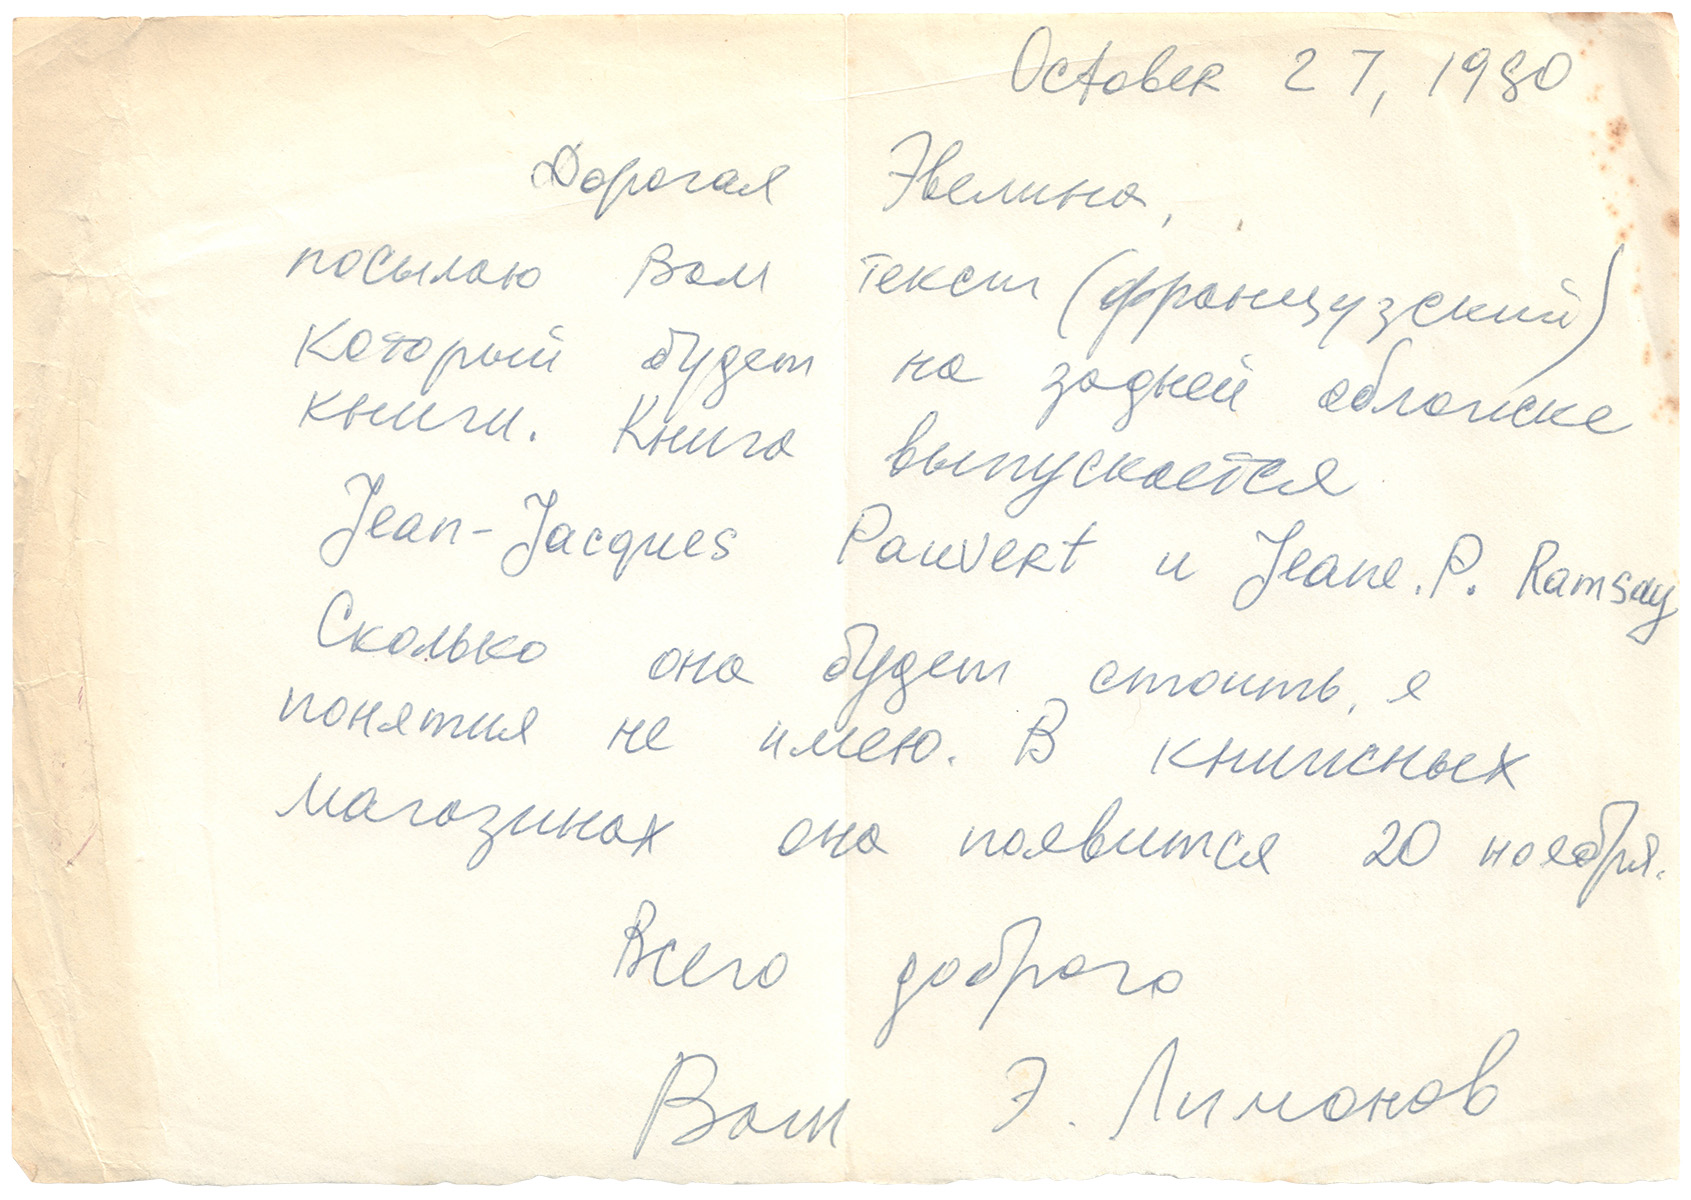 October 27, 1980
Дорогая Эвелина,
посылаю Вам текст (французский)
который будет на задней обложке
книги. Книга выпускается
Jean-Jacques Pauvert и Jeane. P. Ramsay
Сколько она будет стоить, я
понятия не имею. В книжных
магазинах она появится 20 ноября.
Всего доброго
Ваш Э. Лимонов